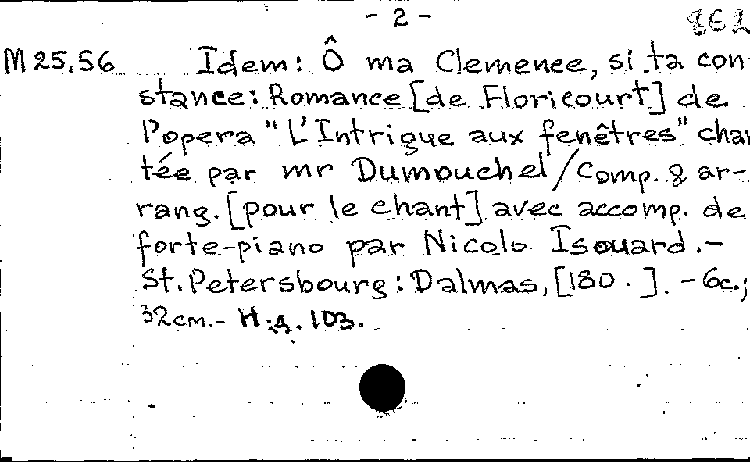 - 2 -
862
M 25.56 Idem: Ô ma Clemence, si ta con-
stance: Romance [de Floricourt] de
l'opera "L'Intrigue aux fenêtres" chan
tée par mr Dumouchel/Comp. & ar-
rang. [pour le chant] avec accomp. de
forte-piano par Nicolo Isouard.-
St. Petersbourg: Dalmas, [180 . ]. - 6c.;
32cm.- H.д. 103.